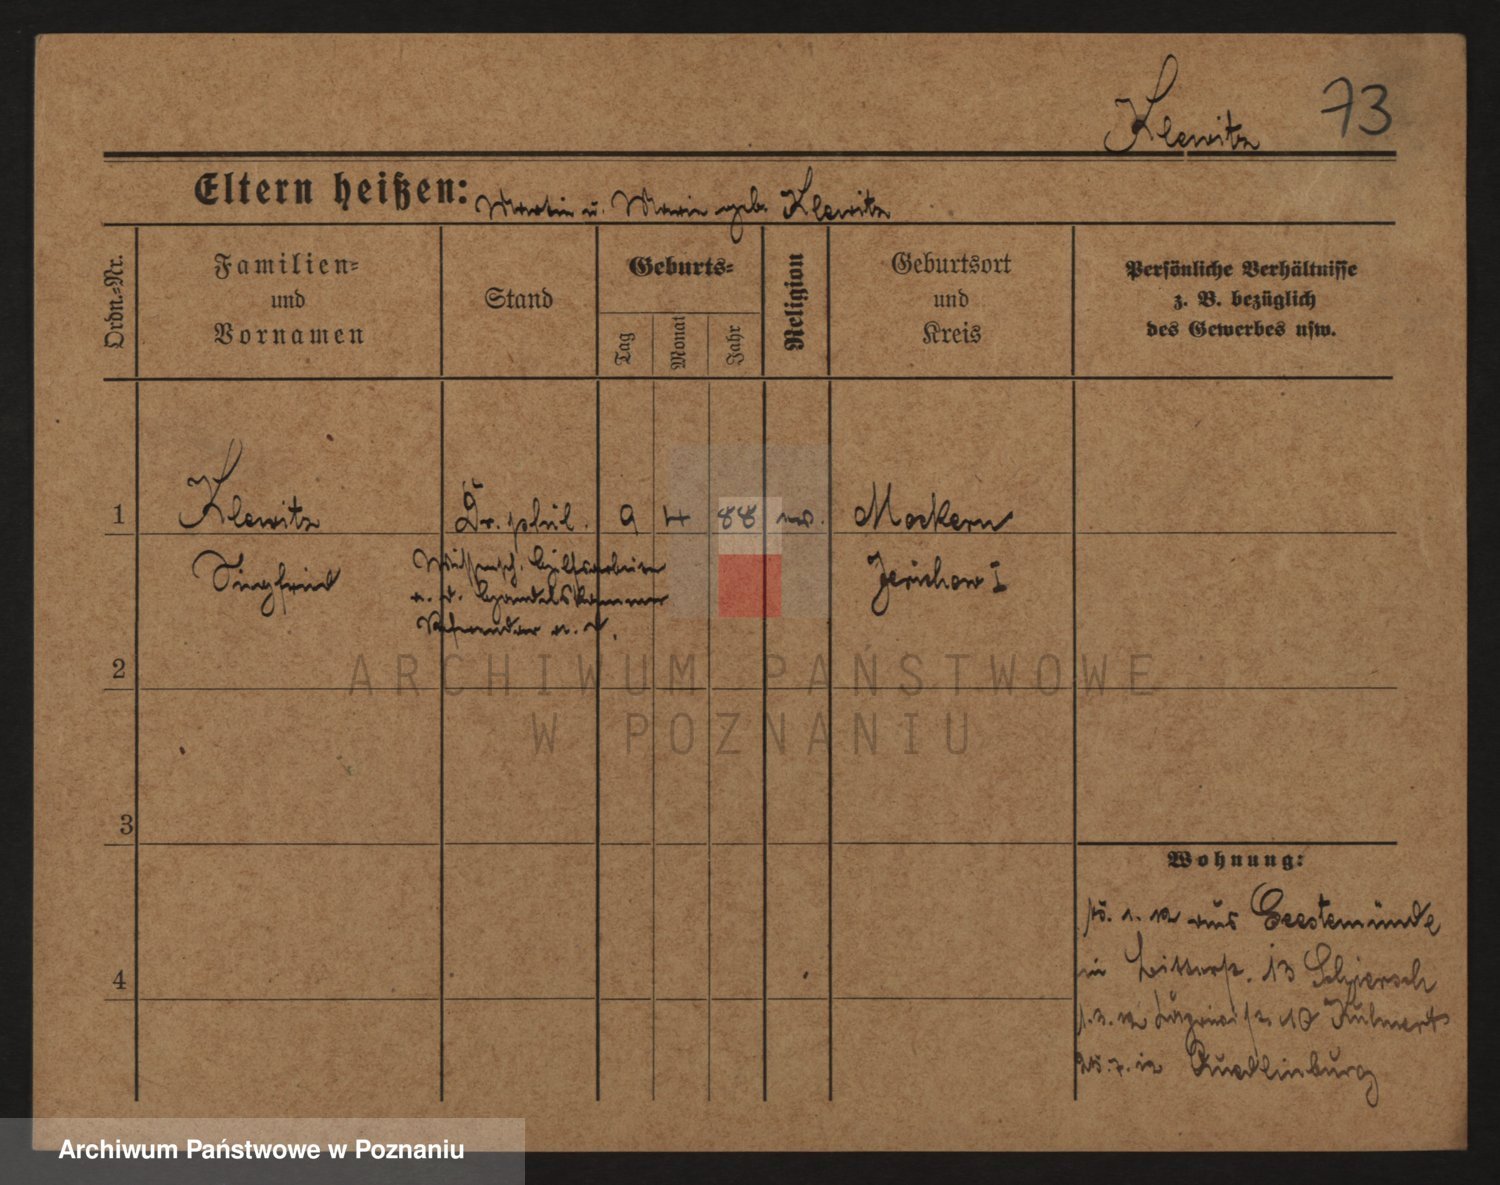 Klewitz 73
Eltern heißen: Martin u. Marie geb. Klewitz
Ordn.-Nr.
Familien-
und
Vornamen
Stand
Geburts-
Tag
Monat
Jahr
Religion
Geburtsort
und
Kreis
Persönliche Verhältnisse
z. B. bezüglich
des Gewerbes usw.
1 Klewitz Dr. phil. 9 4 88 Mockern
Siegfried Jerichow I
Wissensch. Hilfsarbeiter
a. d. Handelskammer
2
3
4
Wohnung:
12 aus Geestemünde
in 13
10
7. 12 Quedlinburg
ARCHIWUM PAŃSTWOWE
W POZNANIU
Archiwum Państwowe w Poznaniu